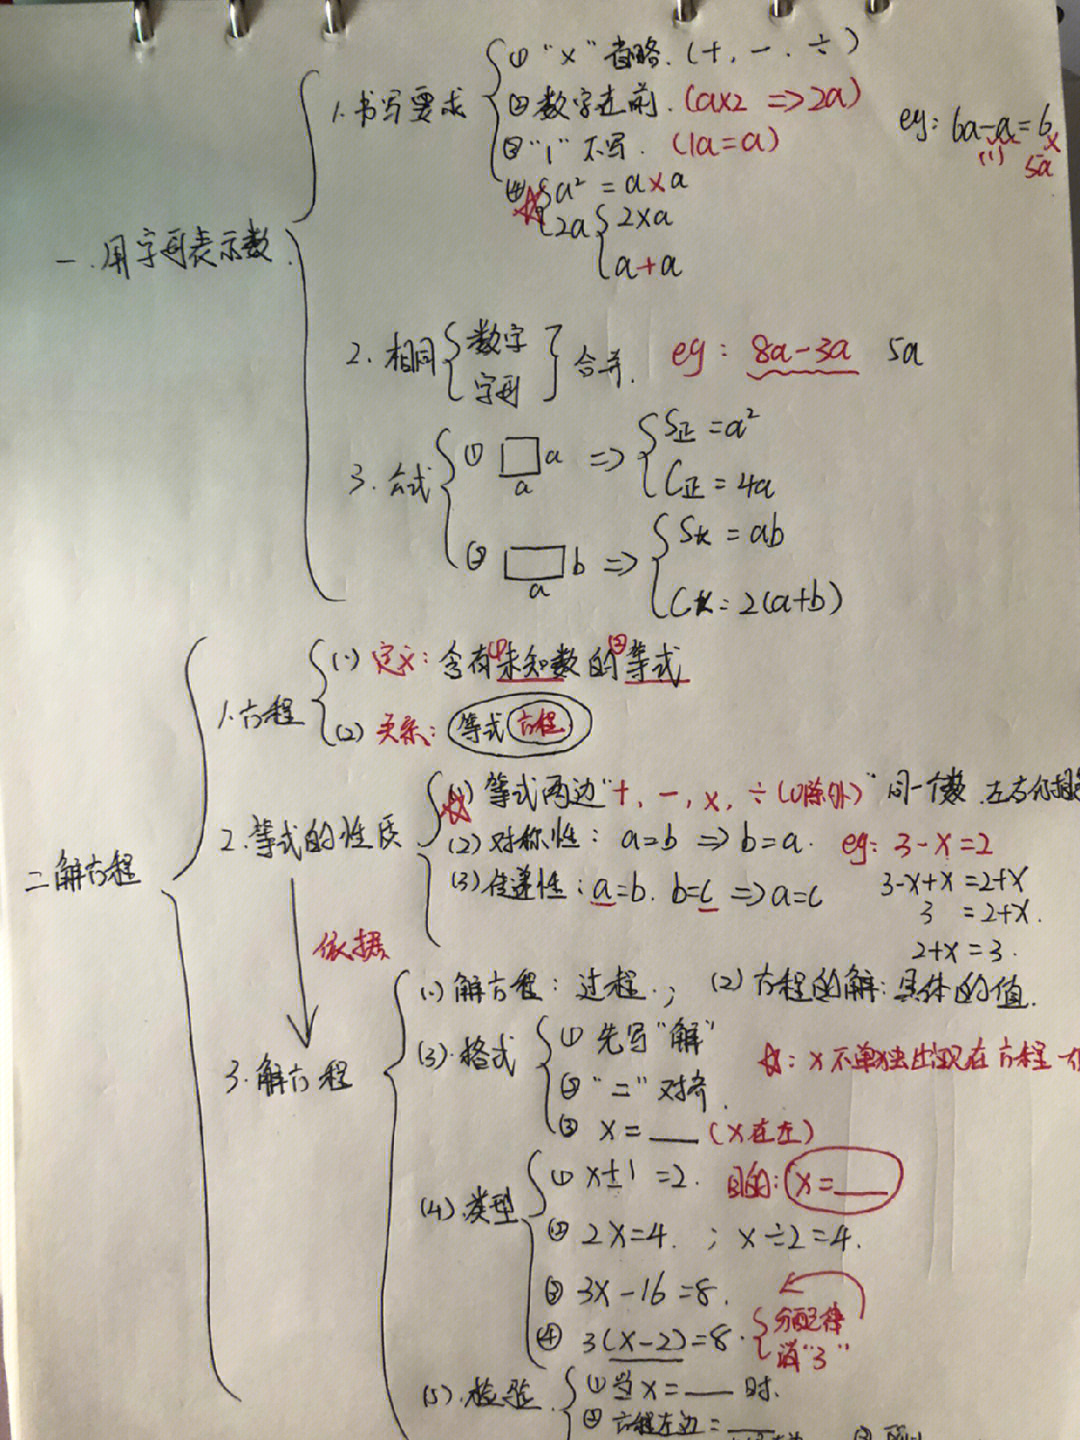 一.用字母表示数.
1.书写要求
① "×" 省略.(+, -. ÷)
②数字在前.(a×2 => 2a)
③"1" 不写. (1a=a)
④ a² = a×a
2a 2×a
a+a
eg: 6a-a=6 ×
(1) 5a
2. 相同 数字 字母 合并. eg: 8a-3a 5a
3. 公式
① a a => S正 = a²
C正 = 4a
② b a => S长 = ab
C长 = 2(a+b)
二.解方程
1.方程
(1) 定义: 含有①未知数的②等式
(2) 关系: 等式 方程
2.等式的性质
(1) 等式两边"+, -, ×, ÷(0除外)" 同一个数.左右仍相等
(2) 对称性: a=b => b=a. eg: 3-x=2
3-x+x =2+x
3 =2+x.
2+x=3.
(3) 传递性: a=b. b=c => a=c
依据
3.解方程
(1)解方程: 过程.; (2)方程的解: 具体的值.
(3).格式
① 先写"解"
② "=" 对齐.
③ x = ___ (x在左)
☆: x不单独出现在方程一
(4).类型
① x±1 =2. 目的: x=___
② 2x=4. ; x÷2=4.
③ 3x-16=8.
④ 3(x-2)=8. 分配律
消"3"
(5).检验
①当x=___时.
②方程左边=___